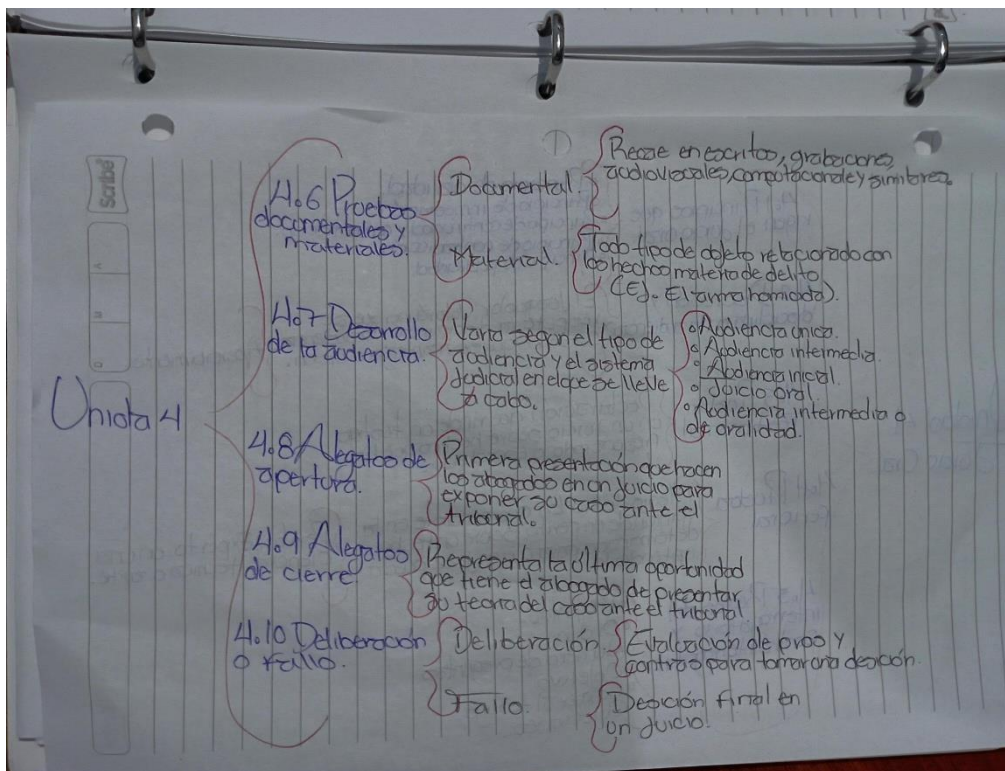 Scribe
Unidad 4
4.6 Pruebas
documentales y
materiales.
Documental.
Recae en escritos, grabaciones,
audiovisuales, computacionale y similares.
Material.
Todo tipo de objeto relacionado con
los hechos materia de delito
(Ej. El arma homicida).
4.7 Desarrollo
de la audiencia.
Varia segun el tipo de
audiencia y el sistema
judicial en el que se lleve
a cabo.
Audiencia única.
Audiencia intermedia.
Audiencia inicial.
Juicio oral.
Audiencia intermedia o
de oralidad.
4.8 Alegatos de
apertura.
Primera presentación que hacen
los abogados en un juicio para
exponer su caso ante el
tribunal.
4.9 Alegatos
de cierre
Representa la última oportunidad
que tiene el abogado de presentar
su teoria del caso ante el tribunal.
4.10 Deliberación
o fallo.
Deliberación.
Evaluación de pros y
contras para tomar una desición.
Fallo.
Desición final en
un juicio.